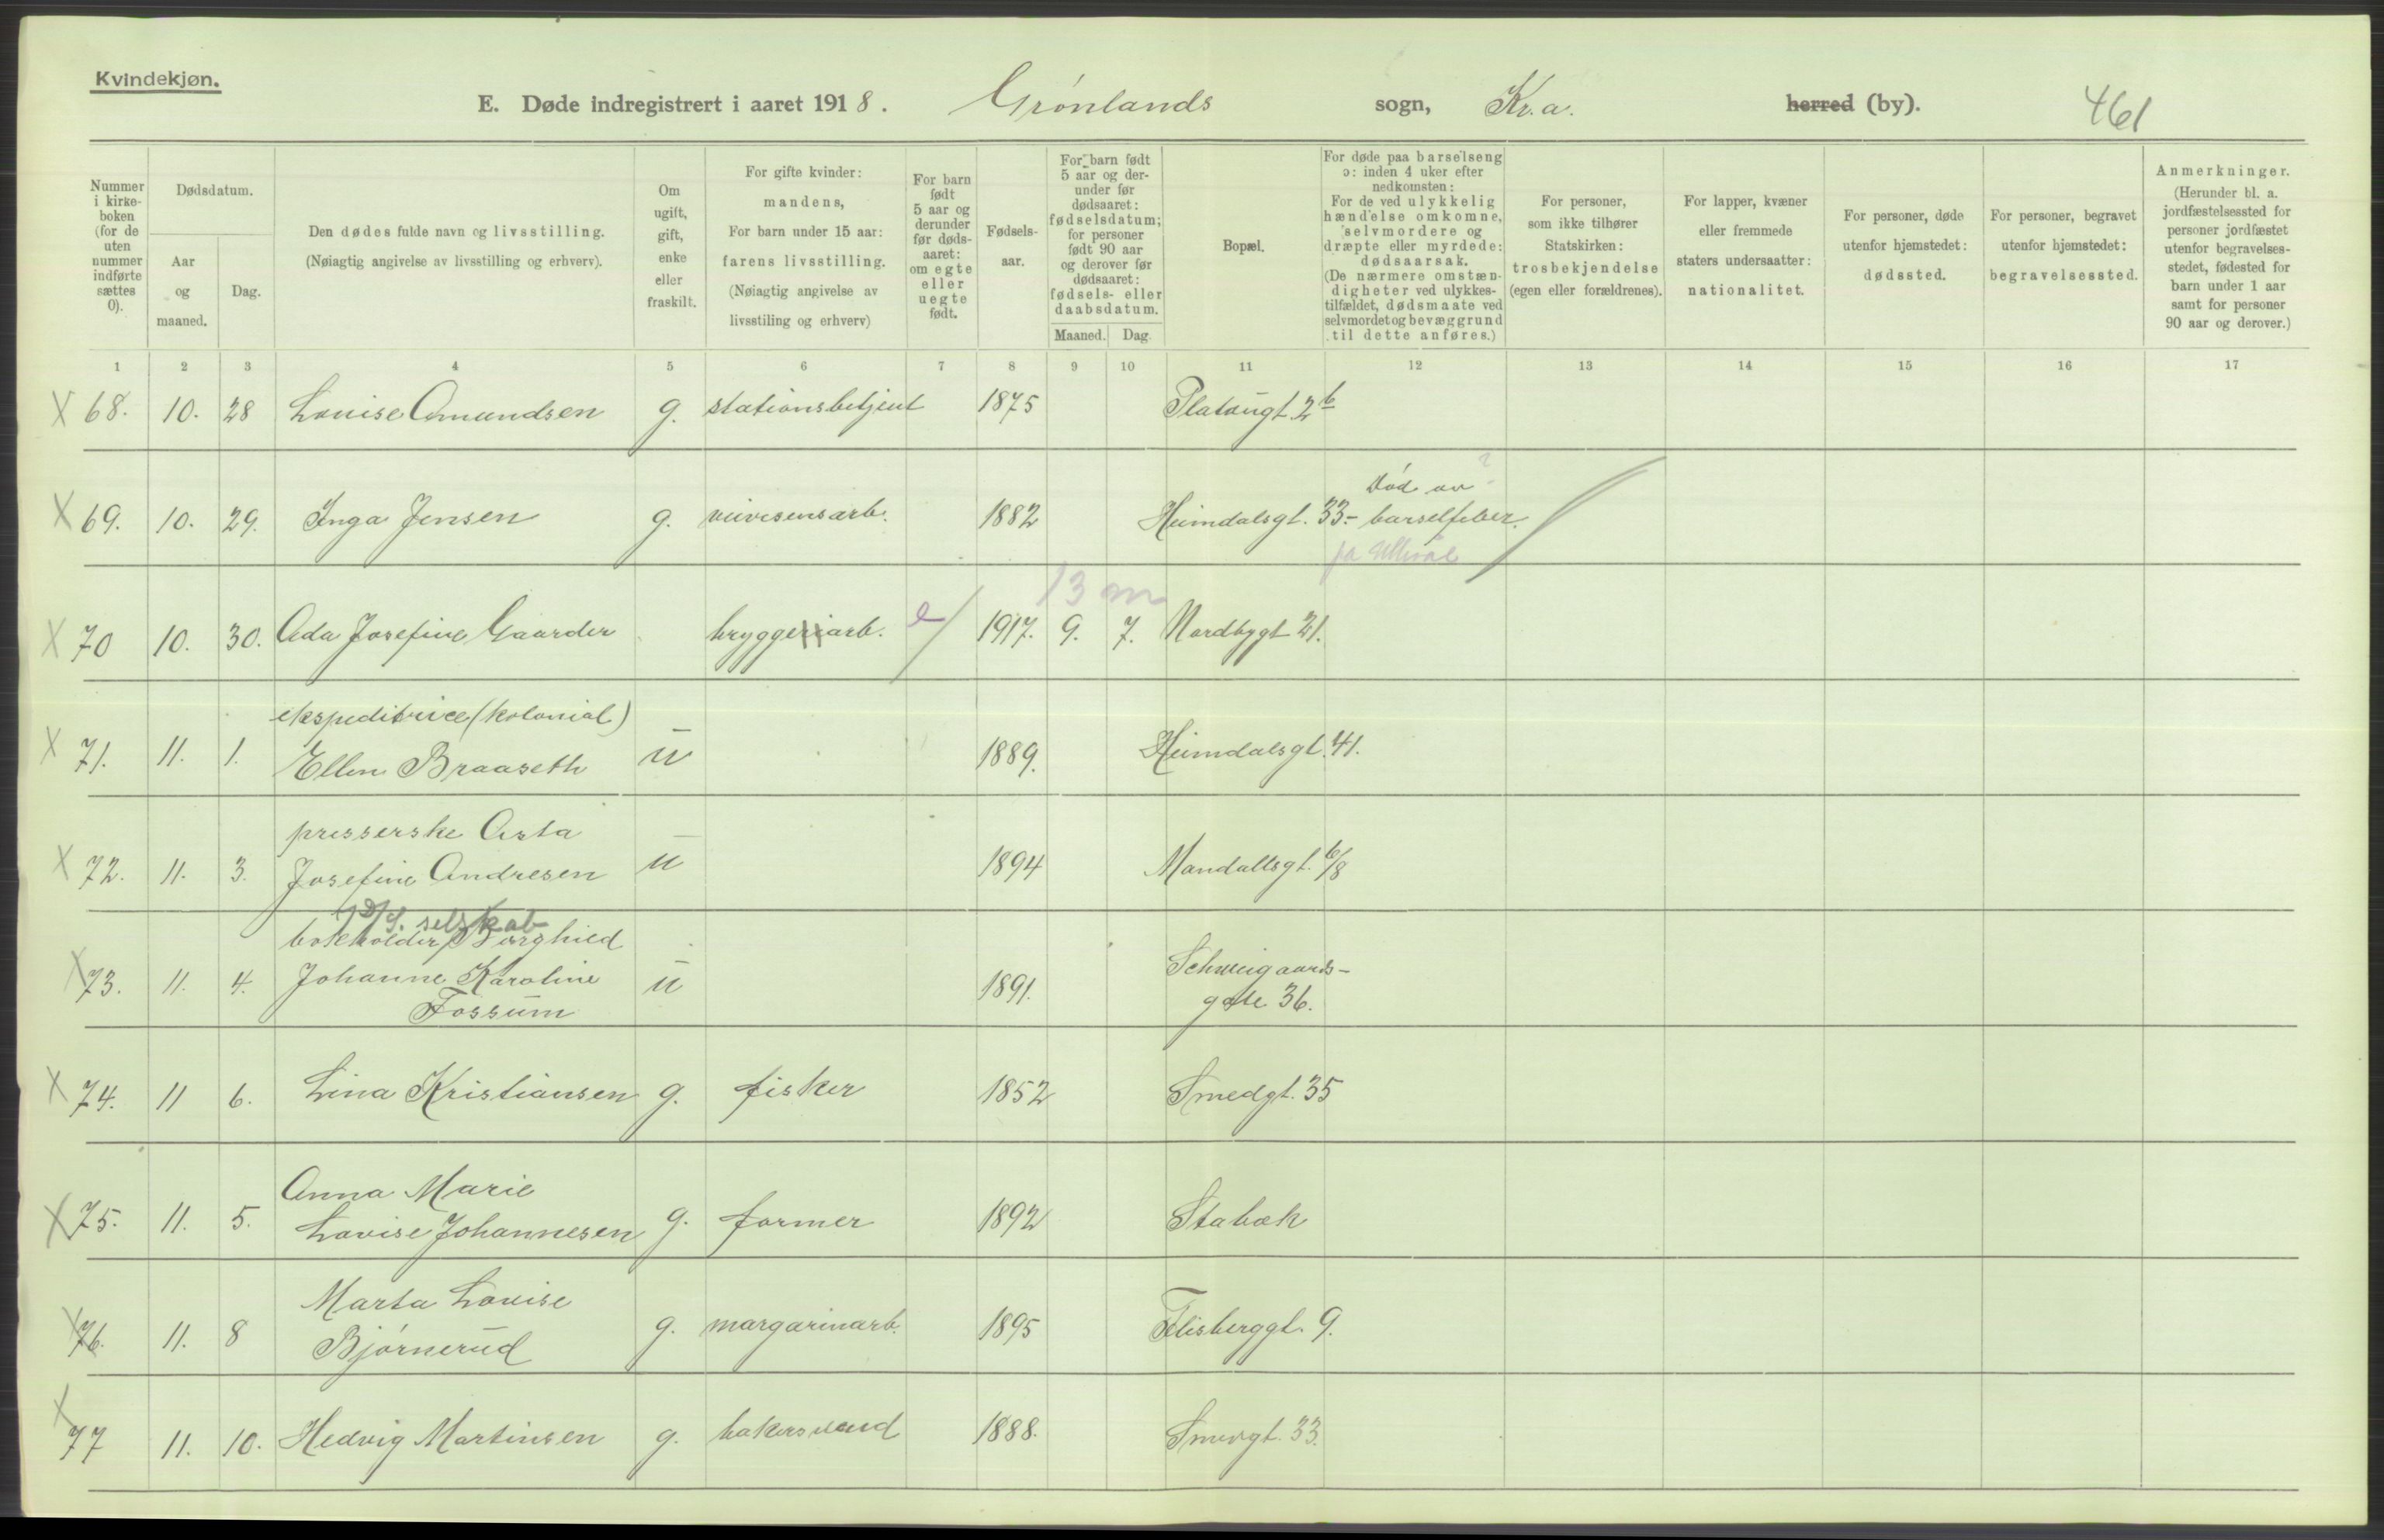 Kvindekjøn.
E. Døde indregistrert i aaret 1918. Grønlands sogn, Kr.a. herred (by). 461
Nummer i kirke-boken (for de uten nummer indførte sættes 0).
Dødsdatum.
Aar og maaned.
Dag.
Den dødes fulde navn og livsstilling.
(Nøiagtig angivelse av livsstilling og erhverv).
Om ugift, gift, enke eller fraskilt.
For gifte kvinder: mandens,
For barn under 15 aar: farens livsstilling.
(Nøiagtig angivelse av livsstiling og erhverv)
For barn født 5 aar og derunder før døds-aaret: om egte eller uegte født.
Fødsels-aar.
For barn født 5 aar og der-under før dødsaaret: fødselsdatum; for personer født 90 aar og derover før dødsaaret: fødsels- eller daabsdatum.
Maaned. Dag.
Bopæl.
For døde paa barselseng ɔ: inden 4 uker efter nedkomsten:
For de ved ulykkelig hændelse omkomne, selvmordere og dræpte eller myrdede: dødsaarsak.
(De nærmere omstæn-digheter ved ulykkes-tilfældet, dødsmaate ved selvmordet og bevæggrund til dette anføres.)
For personer, som ikke tilhører Statskirken: trosbekjendelse (egen eller forældrenes).
For lapper, kvæner eller fremmede staters undersaatter: nationalitet.
For personer, døde utenfor hjemstedet: dødssted.
For personer, begravet utenfor hjemstedet: begravelsessted.
Anmerkninger.
(Herunder bl. a. jordfæstelsessted for personer jordfæstet utenfor begravelses-stedet, fødested for barn under 1 aar samt for personer 90 aar og derover.)
1 2 3 4 5 6 7 8 9 10 11 12 13 14 15 16 17
X 68. 10. 28 Louise Amundsen g. stationsbetjent 1875 Platougt. 2b
Død av ?
X 69. 10. 29. Inga Jensen g. veivesensarb. 1882 Heimdalsgt. 33.- barselfeber.
13 m
X 70 10. 30. Ada Josefine Gaarder bryggeriarb. e 1917. 9. 7. Nordbygt 21.
ekspeditrice (kolonial)
X 71. 11. 1. Ellen Braaseth u 1889. Heimdalsgt. 41.
presserske Asta
X 72. 11. 3. Josefine Andresen u 1894 Mandallsgt. 6/8
selskab
bokholder Borghild
X 73. 11. 4. Johanne Karoline u 1891. Schweigaards-
Fossum gate 36.
X 74. 11 6. Lina Kristiansen g. fisker 1852 Smedgt. 35
Anna Marie
X 75. 11. 5. Lovise Johannesen g. former 1892 Stabæk
Marta Lovise
X 76. 11. 8 Bjørnerud g. margarinarb. 1895 Flisberggt. 9.
X 77 11. 10. Hedvig Martinsen g. bakersvend 1888. Smedgt. 33.